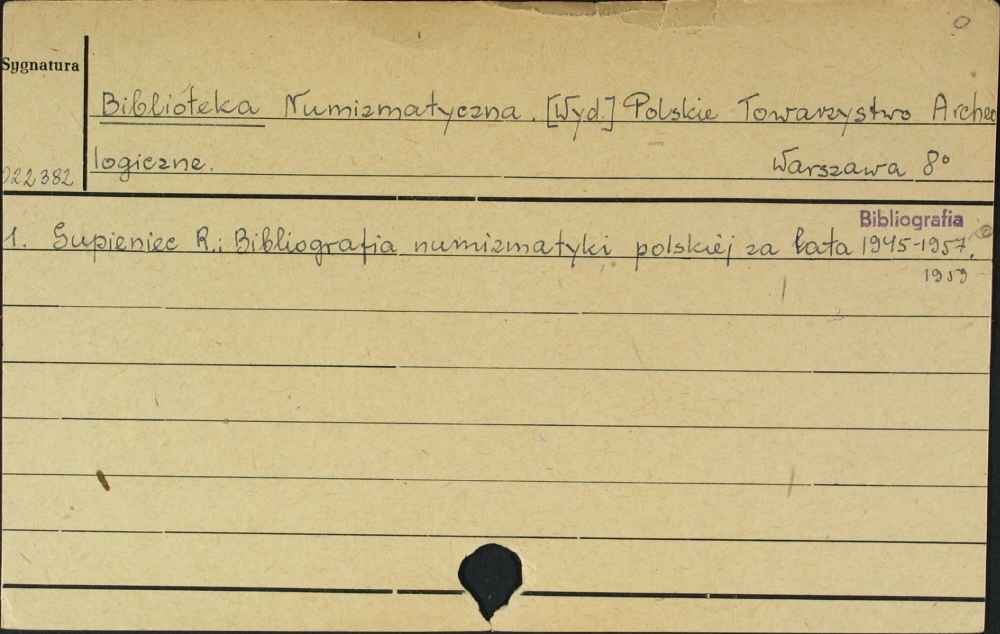 0
Sygnatura
Biblioteka Numizmatyczna. [Wyd.] Polskie Towarzystwo Archeo
logiczne. Warszawa 8°
022382
Bibliografia
1. Gupieniec R.: Bibliografia numizmatyki polskiej za lata 1945-1957.
1959